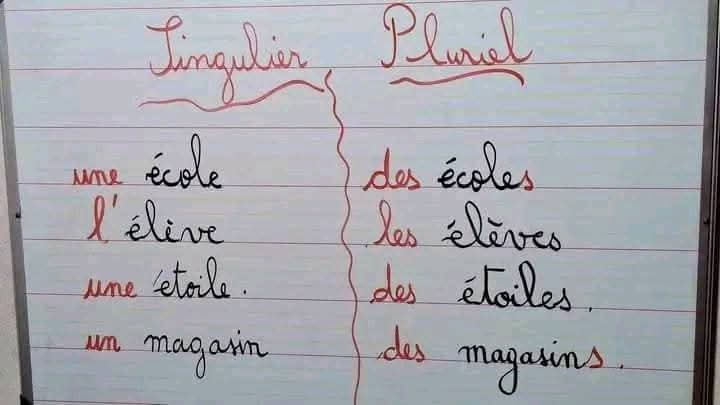 Singulier Pluriel
une école des écoles
l'élève les élèves
une étoile. des étoiles.
un magasin des magasins.